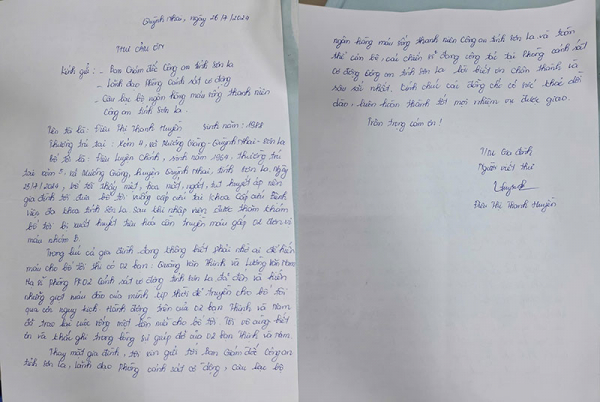 Quỳnh Nhai, ngày 26/7/2024
THƯ CẢM ƠN
Kính gửi: - Ban Giám đốc Công an tỉnh Sơn La
- Lãnh đạo Phòng Cảnh sát cơ động
- Câu lạc bộ ngân hàng máu sống thanh niên
Công an tỉnh Sơn La.
Tên tôi là: Điêu Thị Thanh Huyền sinh năm: 1988
Thường trú tại: Xóm 4, xã Mường Giàng - Quỳnh Nhai - Sơn La
Bố tôi là: Điêu Luyện Chính, sinh năm 1964, thường trú
tại xóm 5, xã Mường Giàng, huyện Quỳnh Nhai, tỉnh Sơn La. Ngày
25/7/2024, bố tôi thấy mệt, hoa mắt, ngất, tụt huyết áp nên
gia đình tôi đưa bố tôi xuống cấp cứu tại khoa Cấp cứu Bệnh
viện đa khoa tỉnh Sơn La. Sau khi nhập viện, được thăm khám
bố tôi bị xuất huyết tiêu hóa cần truyền máu gấp 02 đơn vị
máu nhóm B.
Trong lúc cả gia đình đang không biết phải nhờ ai để hiến
máu cho bố tôi thì có 02 bạn: Quàng Văn Thinh và Lường Văn Nam
Hạ sĩ phòng PK02 Cảnh sát cơ động tỉnh Sơn La đã đến và hiến
những giọt máu đào của mình kịp thời để truyền cho bố tôi
qua cơn nguy kịch. Hành động trên của 02 bạn Thinh và Nam
đã trao lại cuộc sống một lần nữa cho bố tôi. Tôi vô cùng biết
ơn và khắc ghi trong lòng sự giúp đỡ của 02 bạn Thinh và Nam.
Thay mặt gia đình, tôi xin gửi tới Ban Giám đốc Công an
tỉnh Sơn La, lãnh đạo Phòng cảnh sát cơ động, câu lạc bộ
ngân hàng máu sống thanh niên Công an tỉnh Sơn La và toàn
thể cán bộ, cải chiến sĩ đang công tác tại Phòng cảnh sát
cơ động Công an tỉnh Sơn La lời biết ơn chân thành và
sâu sắc nhất. Kính chúc các đồng chí có sức khoẻ dồi
dào, luôn hoàn thành tốt mọi nhiệm vụ được giao.
Trân trọng cảm ơn!
Người viết thư
Huyền
Điêu Thị Thanh Huyền